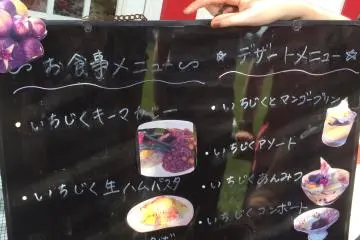 お食事メニュー
・いちじくキーマカレー
・いちじく生ハムパスタ
☆デザートメニュー☆
・いちじくとマンゴープリン
・いちじくアソート
・いちじくあんみつ
・いちじくコンポート